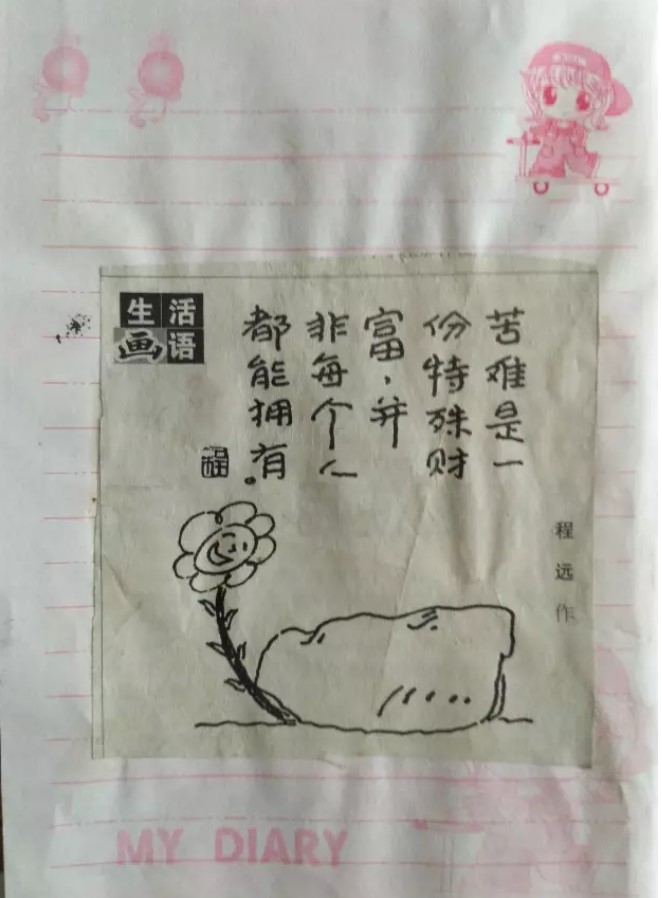 生活
画语
苦难是一
份特殊财
富，并
非每个人
都能拥有。
程
程远作
MY DIARY